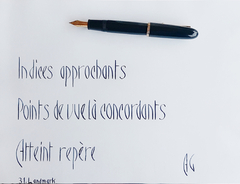 Indices approchants
Points de vue là concordants
Atteint repère
AG
31. Landmark